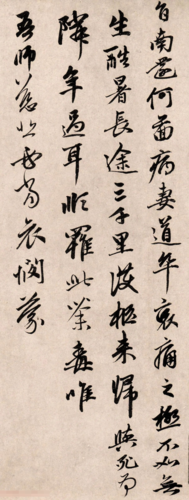 自南還何圖病妻道卒哀痛之極不如無
生酷暑長途三千里護柩來歸與死為
隣年過耳順罹此荼毒唯
吾師慈悲必當哀憫蒙